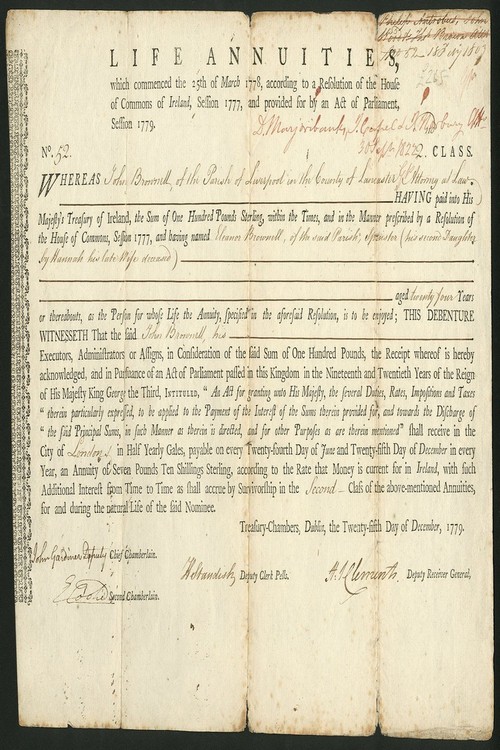 John
LIFE ANNUITIES,
which commenced the 25th of March 1778, according to a Resolution of the House
of Commons of Ireland, Session 1777, and provided for by an Act of Parliament,
Session 1779.
2. CLASS.
No. 52.
WHEREAS John Brownell, of the Parish of Liverpool in the County of Lancaster, Attorney at Law
HAVING paid into His
Majesty's Treasury of Ireland, the Sum of One Hundred Pounds Sterling, within the Times, and in the Manner prescribed by a Resolution of
the House of Commons, Session 1777, and having named Eleanor Brownell, of the said Parish, Spinster (his second Daughter
by Hannah his late Wife deceased)
aged twenty four Years
or thereabouts, as the Person for whose Life the Annuity, specified in the aforesaid Resolution, is to be enjoyed; THIS DEBENTURE
WITNESSETH That the said John Brownell, his
Executors, Administrators or Assigns, in Consideration of the said Sum of One Hundred Pounds, the Receipt whereof is hereby
acknowledged, and in Pursuance of an Act of Parliament passed in this Kingdom in the Nineteenth and Twentieth Years of the Reign
of His Majesty King George the Third, INTITULED, " An Act for granting unto His Majesty, the several Duties, Rates, Impositions and Taxes
" therein particularly expressed, to be applied to the Payment of the Interest of the Sums therein provided for, and towards the Discharge of
" the said Principal Sums, in such Manner as therein is directed, and for other Purposes as are therein mentioned" shall receive in the
City of London, in Half Yearly Gales, payable on every Twenty-fourth Day of June and Twenty-fifth Day of December in every
Year, an Annuity of Seven Pounds Ten Shillings Sterling, according to the Rate that Money is current for in Ireland, with such
Additional Interest from Time to Time as shall accrue by Survivorship in the Second Class of the above-mentioned Annuities,
for and during the natural Life of the said Nominee.
Treasury-Chambers, Dublin, the Twenty-fifth Day of December, 1779.
John Gardiner Deputy Chief Chamberlain.
Deputy Clerk Pells.
Deputy Receiver General,
Second Chamberlain.